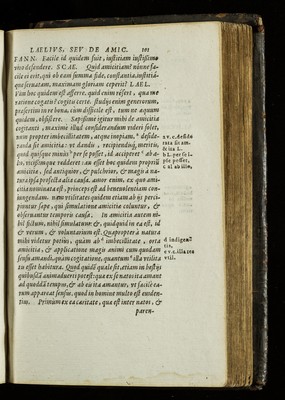 LAELIVS, SEV DE AMIC. 101
FANN. Facile id quidem fuit, iustitiam iustißimo
viro defendere. SCAE. Quid amicitiam? nónne fa-
cile ei erit, qui ob eam summa fide, constantia, iustitiá-
que seruatam, maximam gloriam ceperit? LAEL.
Vim hoc quidem est afferre. quid enim refert, qua me
ratione cogatis? cogitis certe. studijs enim generorum,
præsertim in re bona, cùm difficile est, tum ne æquum
quidem, obsistere. Sæpißime igitur mihi de amicitia
cogitanti, maximè illud considerandum videri solet,
num propter imbecillitatem, atque inopiam, desyde-
randa sit amicitia: vt dandis, recipiendísq; meritis,
quod quisque minus per se posset, id acciperet ab a-
lio, vicißimque redderet: an esset hoc quidem proprium
amicitiæ, sed antiquior, & pulchrior, & magis à na-
tura ipsa profecta alia causa. amor enim, ex quo ami-
citia nominata est, princeps est ad beneuolentiam con-
iungendam. nam vtilitates quidem etiam ab ijs perci-
piuntur sæpe, qui simulatione amicitiæ coluntur, &
obseruantur temporis causa. In amicitia autem ni-
hil fictum, nihil simulatum: &, quidquid in ea est, id
& verum, & voluntarium est. Quapropter à natura
mihi videtur potius, quàm ab imbecillitate, orta
amicitia, & applicatione magis animi cum quodam
sensu amandi, quàm cogitatione, quantum illa vtilita
tis esset habitura. Quod quidem quale sit, etiam in bestijs
quibusdã animaduerti potest: quæ ex se natos ita amant
ad quoddã tempus, & ab eis ita amantur, vt facilè ea-
rum appareat sensus. quod in homine multo est euiden-
tius. Primùm ex ea caritate, quæ est inter natos, &
paren-
b l. per se i-
ple posset,
c al. ab alio,
d indigen-
tia,